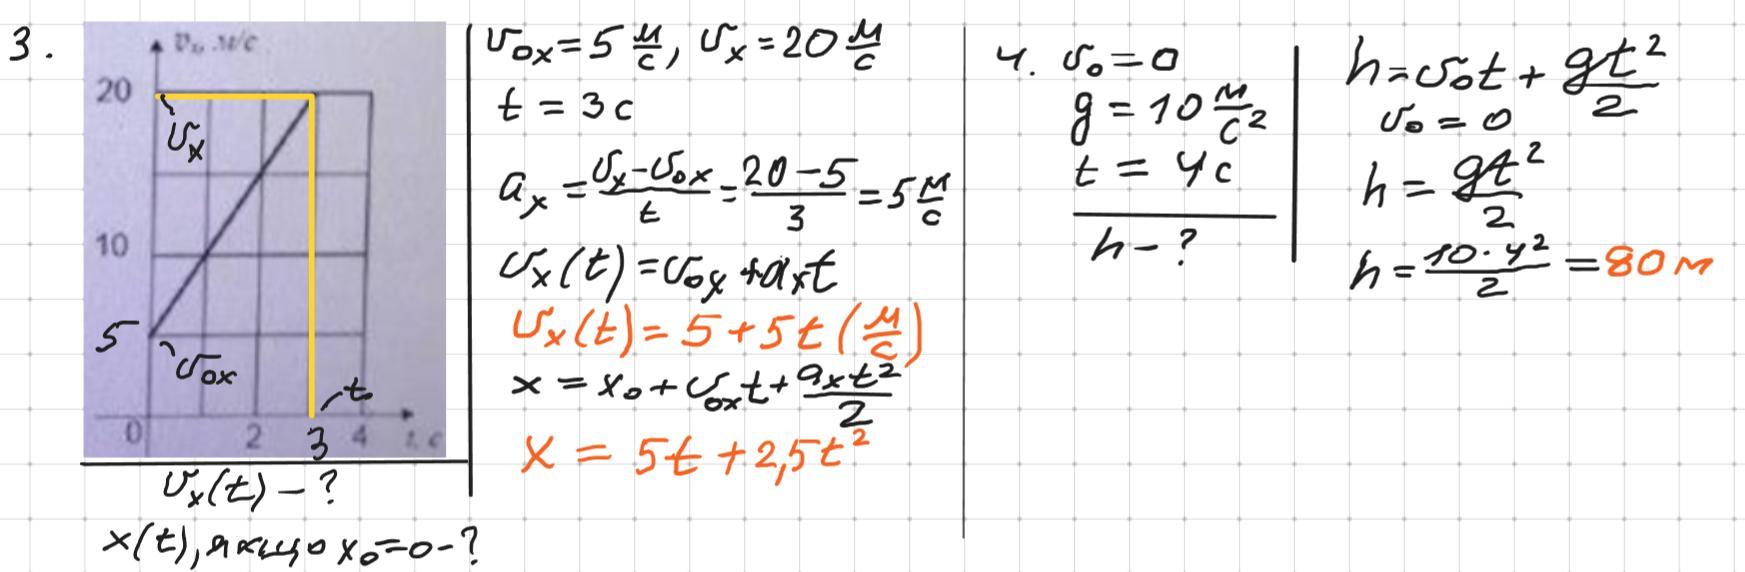 3.
vₓ, м/с
20
υₓ
10
5
υ₀ₓ
t
0 2 3 4 t, с
υₓ(t) – ?
x(t), якщо x₀ = 0 – ?
υ₀ₓ = 5 м/с, υₓ = 20 м/с
t = 3 с
aₓ = (υₓ – υ₀ₓ)/t = (20 – 5)/3 = 5 м/с
υₓ(t) = υ₀ₓ + aₓt
υₓ(t) = 5 + 5t (м/с)
x = x₀ + υ₀ₓt + aₓt²/2
x = 5t + 2,5t²
4. υ₀ = 0
g = 10 м/с²
t = 4 с
h – ?
h = υ₀t + gt²/2
υ₀ = 0
h = gt²/2
h = 10·4²/2 = 80 м